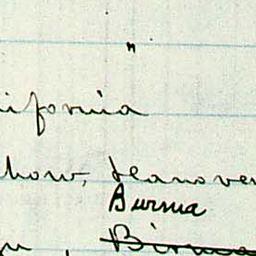 "
ifornia
how, Hanover
Burma
Birma